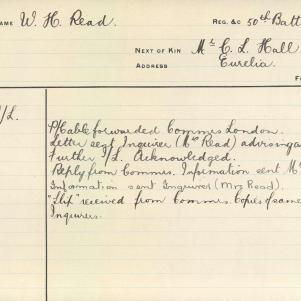 NAME W. H. Read. REG. &c 50th Batt
NEXT OF KIN Mr C. L. Hall
ADDRESS Eurelia.
/L. P/Cable forwarded Commrs London.
Letter sent Inquirer (Mrs Read) advising
Further I/L. Acknowledged.
Reply from Commrs. Information sent
Information sent Inquirer (Mrs Read).
"Slip" received from Commrs. Copies of same
Inquirers.